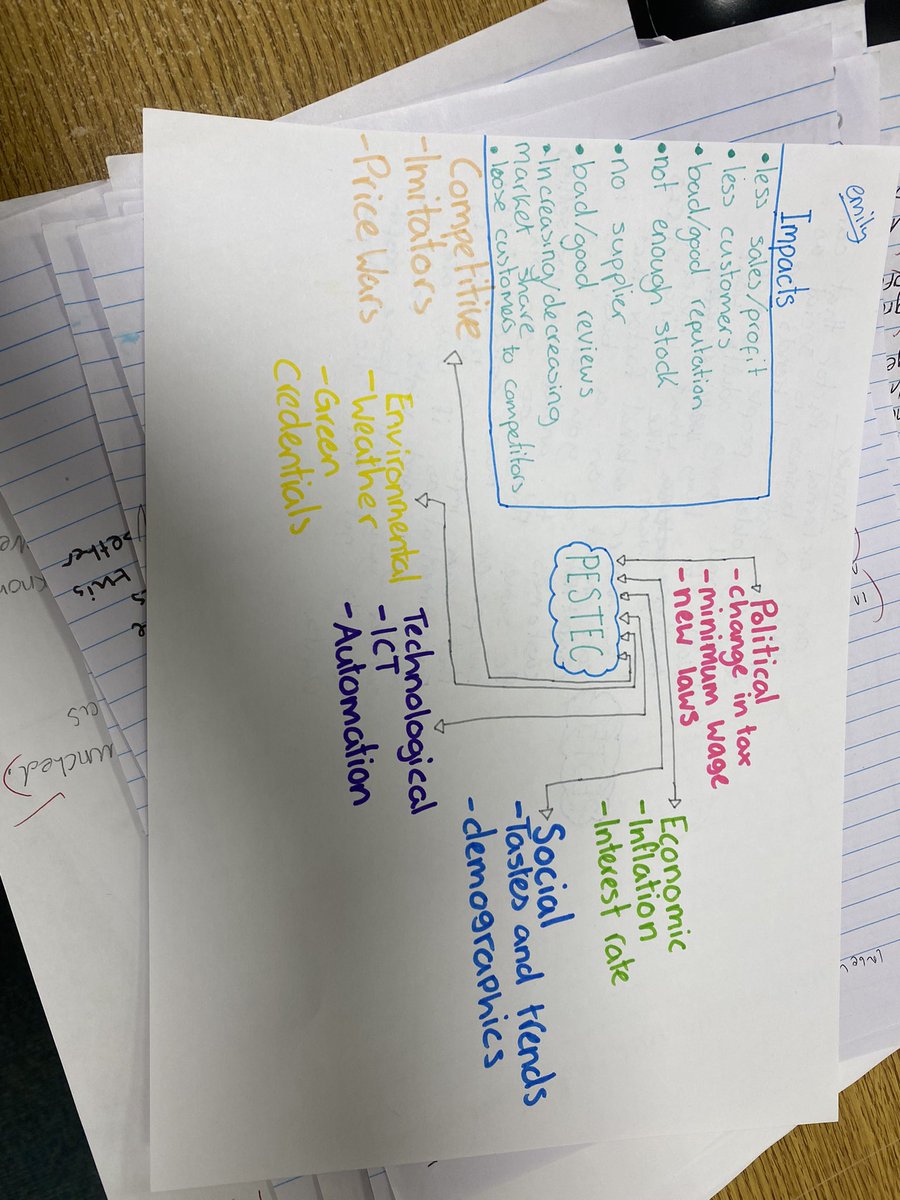 emily
Impacts
• less sales/profit
• less customers
• bad/good reputation
• not enough stock
• no supplier
• bad/good reviews
• Increasing/decreasing
market share
• loose customers to competitors
PESTEC
Political
- change in tax
- minimum wage
- new laws
Economic
- Inflation
- Interest rate
Social
- Tastes and trends
- demographics
Technological
- ICT
- Automation
Environmental
- Weather
- Green
Credentials
Competitive
- Imitators
- Price Wars